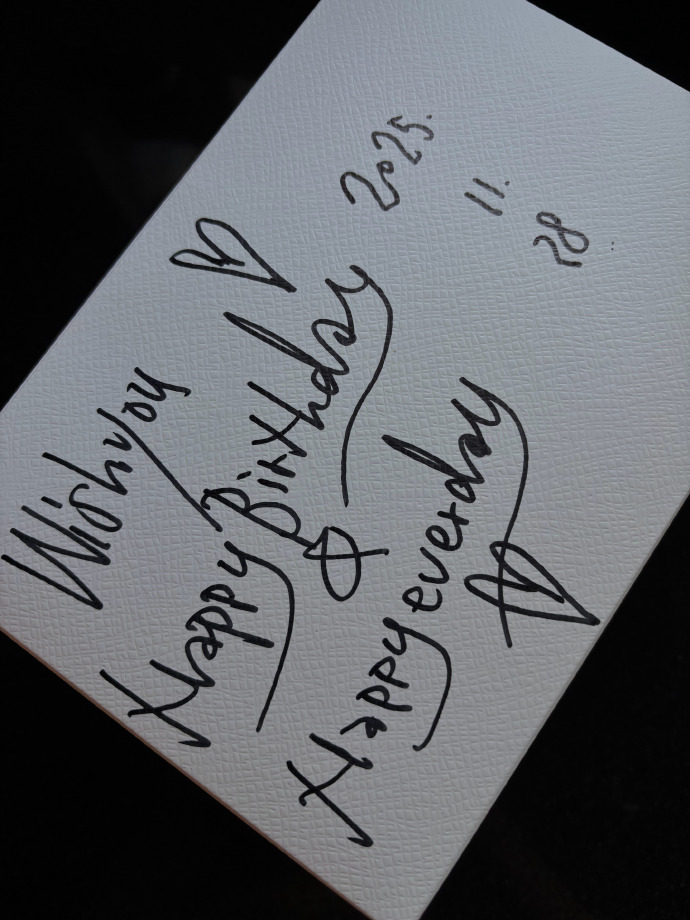 Wish you
Happy Birthday
&
Happy everday
2025.
11.
28